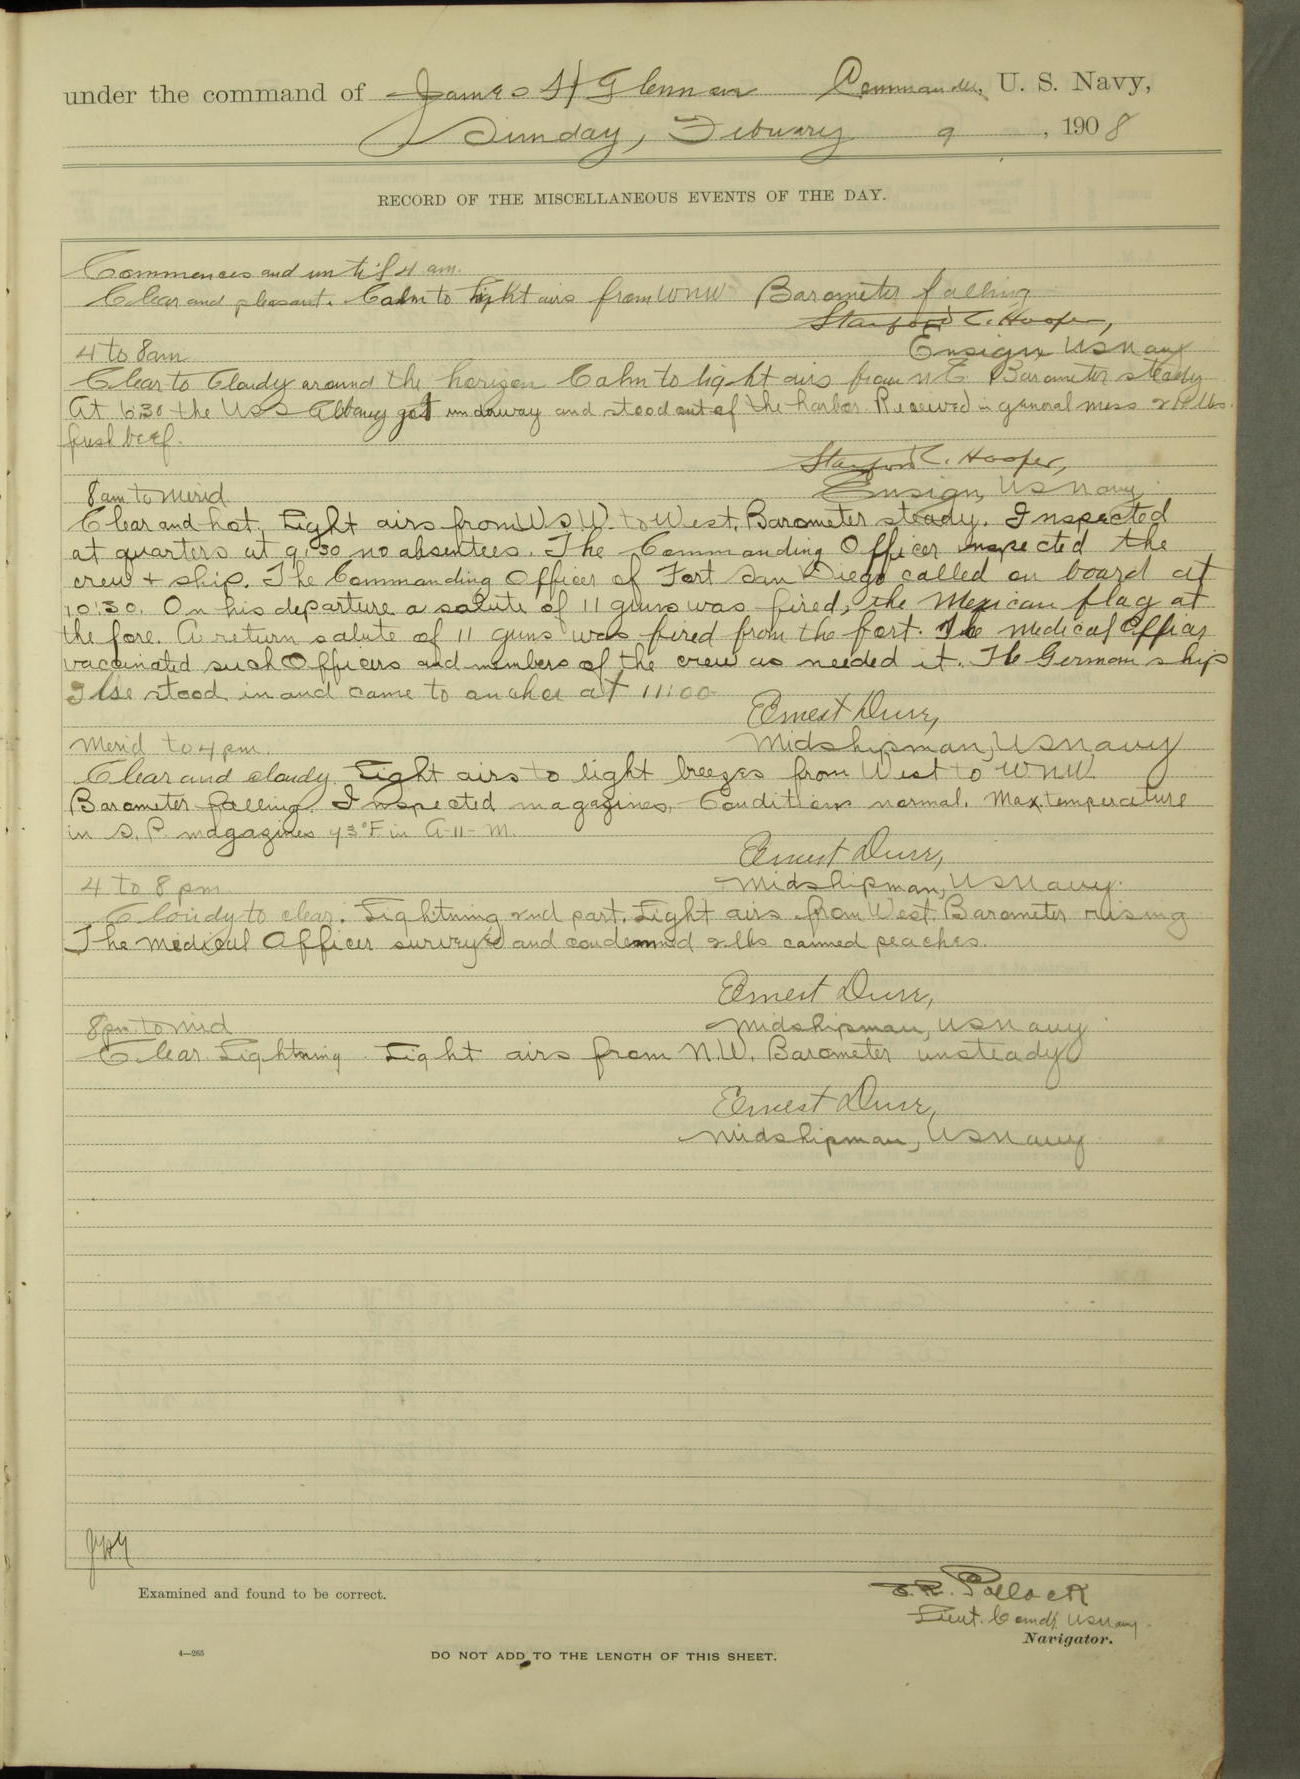 under the command of James H Glennon Commander, U. S. Navy,
Sunday, Febuary 9, 1908
RECORD OF THE MISCELLANEOUS EVENTS OF THE DAY.
Commences and until 4 am.
Clear and pleasant. Calm to light airs from WNW Barometer falling
Stanford C. Hooper,
Ensign US Navy
4 to 8 am
Clear to Cloudy around the horizon Calm to light airs from NE Barometer steady
At 6:30 the USS Albany got underway and stood out of the harbor. Received in general mess lbs.
fresh beef.
Stanford C. Hooper,
Ensign, US Navy
8 am to Merid
Clear and hot. Light airs from WSW. to West. Barometer steady. Inspected
at quarters at 9:30 no absentees. The Commanding Officer inspected the
crew + ship. The Commanding Officer of Fort San Diego called on board at
10:30. On his departure a salute of 11 guns was fired, the Mexican flag at
the fore. A return salute of 11 guns was fired from the fort. The Medical Officer
vaccinated such Officers and members of the crew as needed it. The German ship
Ilse stood in and came to anchor at 11:00
Ernest Durr,
Midshipman, US Navy
Merid to 4 pm.
Clear and cloudy. Light airs to light breezes from West to WNW
Barometer falling. Inspected magazines. Conditions normal. Max. temperature
in S. P. magazines 93°F. in A-11-M.
Ernest Durr,
Midshipman, US Navy.
4 to 8 pm
Cloudy to clear. Lightning 2nd part. Light airs from West. Barometer rising
The Medical Officer surveyed and condemned 2 lbs canned peaches.
Ernest Durr,
Midshipman, US Navy
8 pm. to mid
Clear. Lightning. Light airs from N.W. Barometer unsteady
Ernest Durr,
Midshipman, US Navy
Examined and found to be correct.
E. R. Pollock
Lieut. Comdr. US Navy.
Navigator.
4—265
DO NOT ADD TO THE LENGTH OF THIS SHEET.